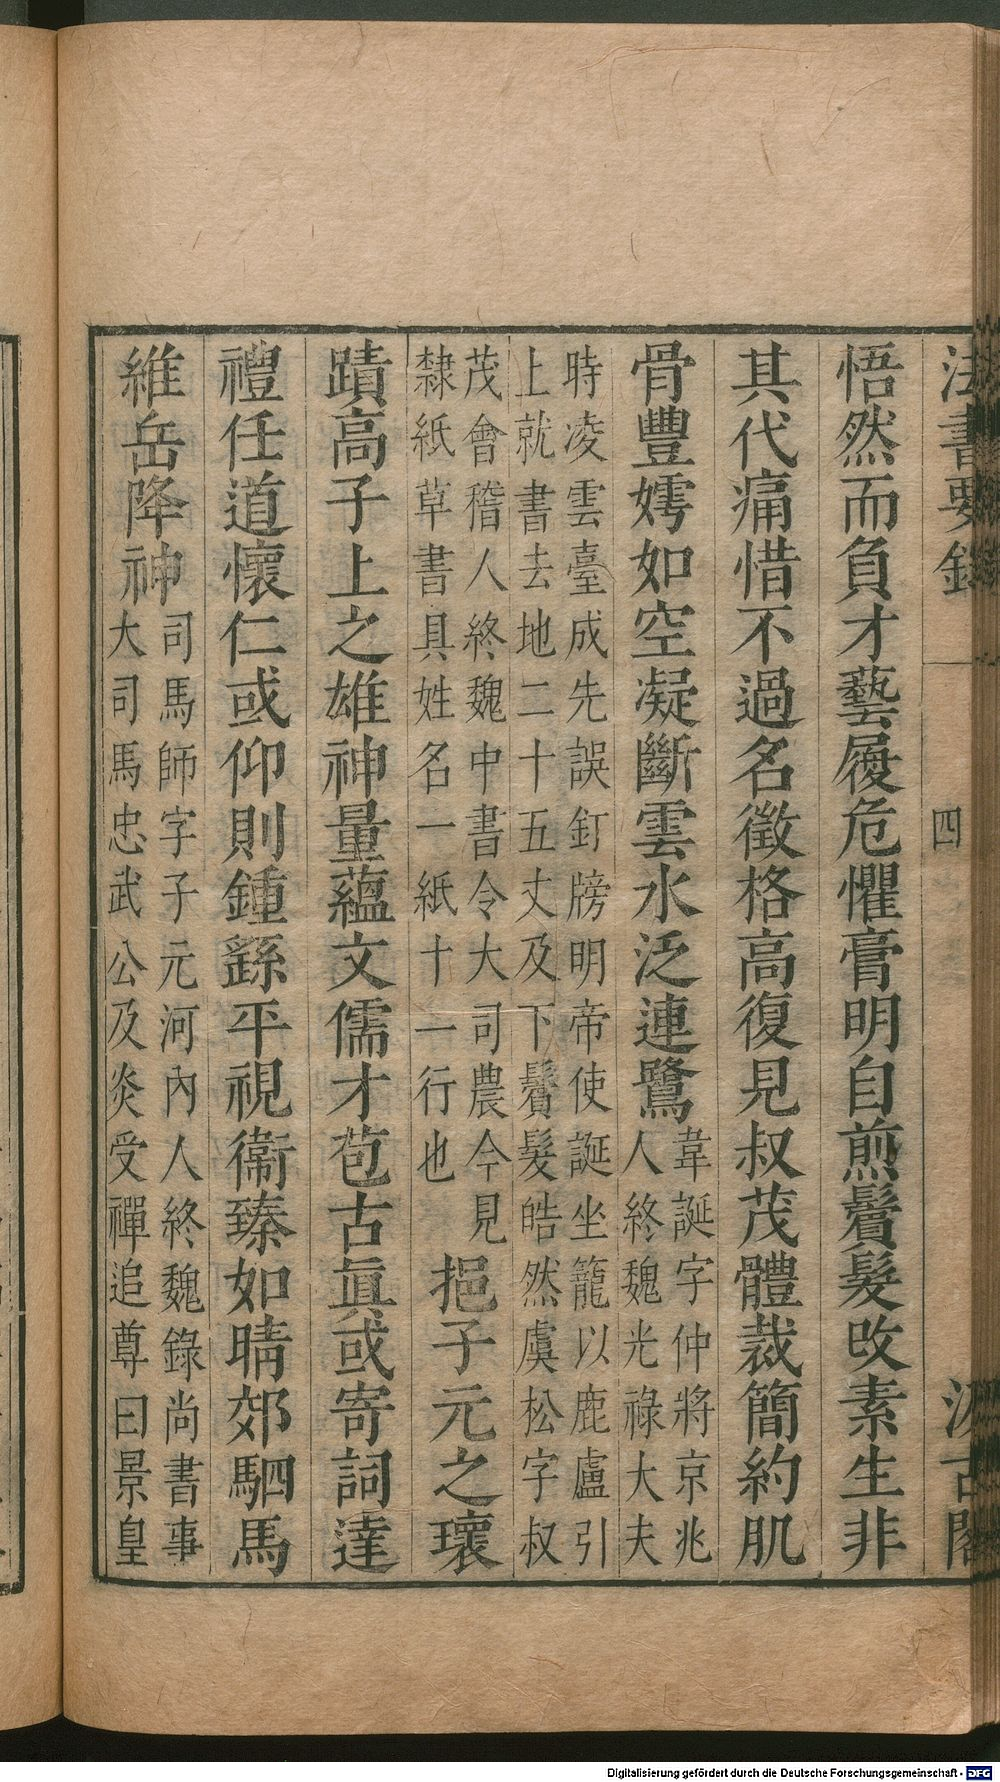 法書要錄
四
汲古閣
悟然而負才藝履危懼膏明自煎鬢髮改素生非
其代痛惜不過名徵格高復見叔茂體裁簡約肌
骨豐嫮如空凝斷雲水泛連鷺韋誕字仲將京兆
人終魏光祿大夫
時凌雲臺成先誤釘牓明帝使誕坐籠以鹿盧引
上就書去地二十五丈及下鬢髮皓然虞松字叔
茂會稽人終魏中書令大司農今見
隸紙草書具姓名一紙十一行也
挹子元之瓌
蹟高子上之雄神量蘊文儒才苞古眞或寄詞達
禮任道懷仁或仰則鍾繇平視衞臻如晴郊駟馬
維岳降神司馬師字子元河內人終魏錄尚書事
大司馬忠武公及炎受禪追尊曰景皇
Digitalisierung gefördert durch die Deutsche Forschungsgemeinschaft - DFG